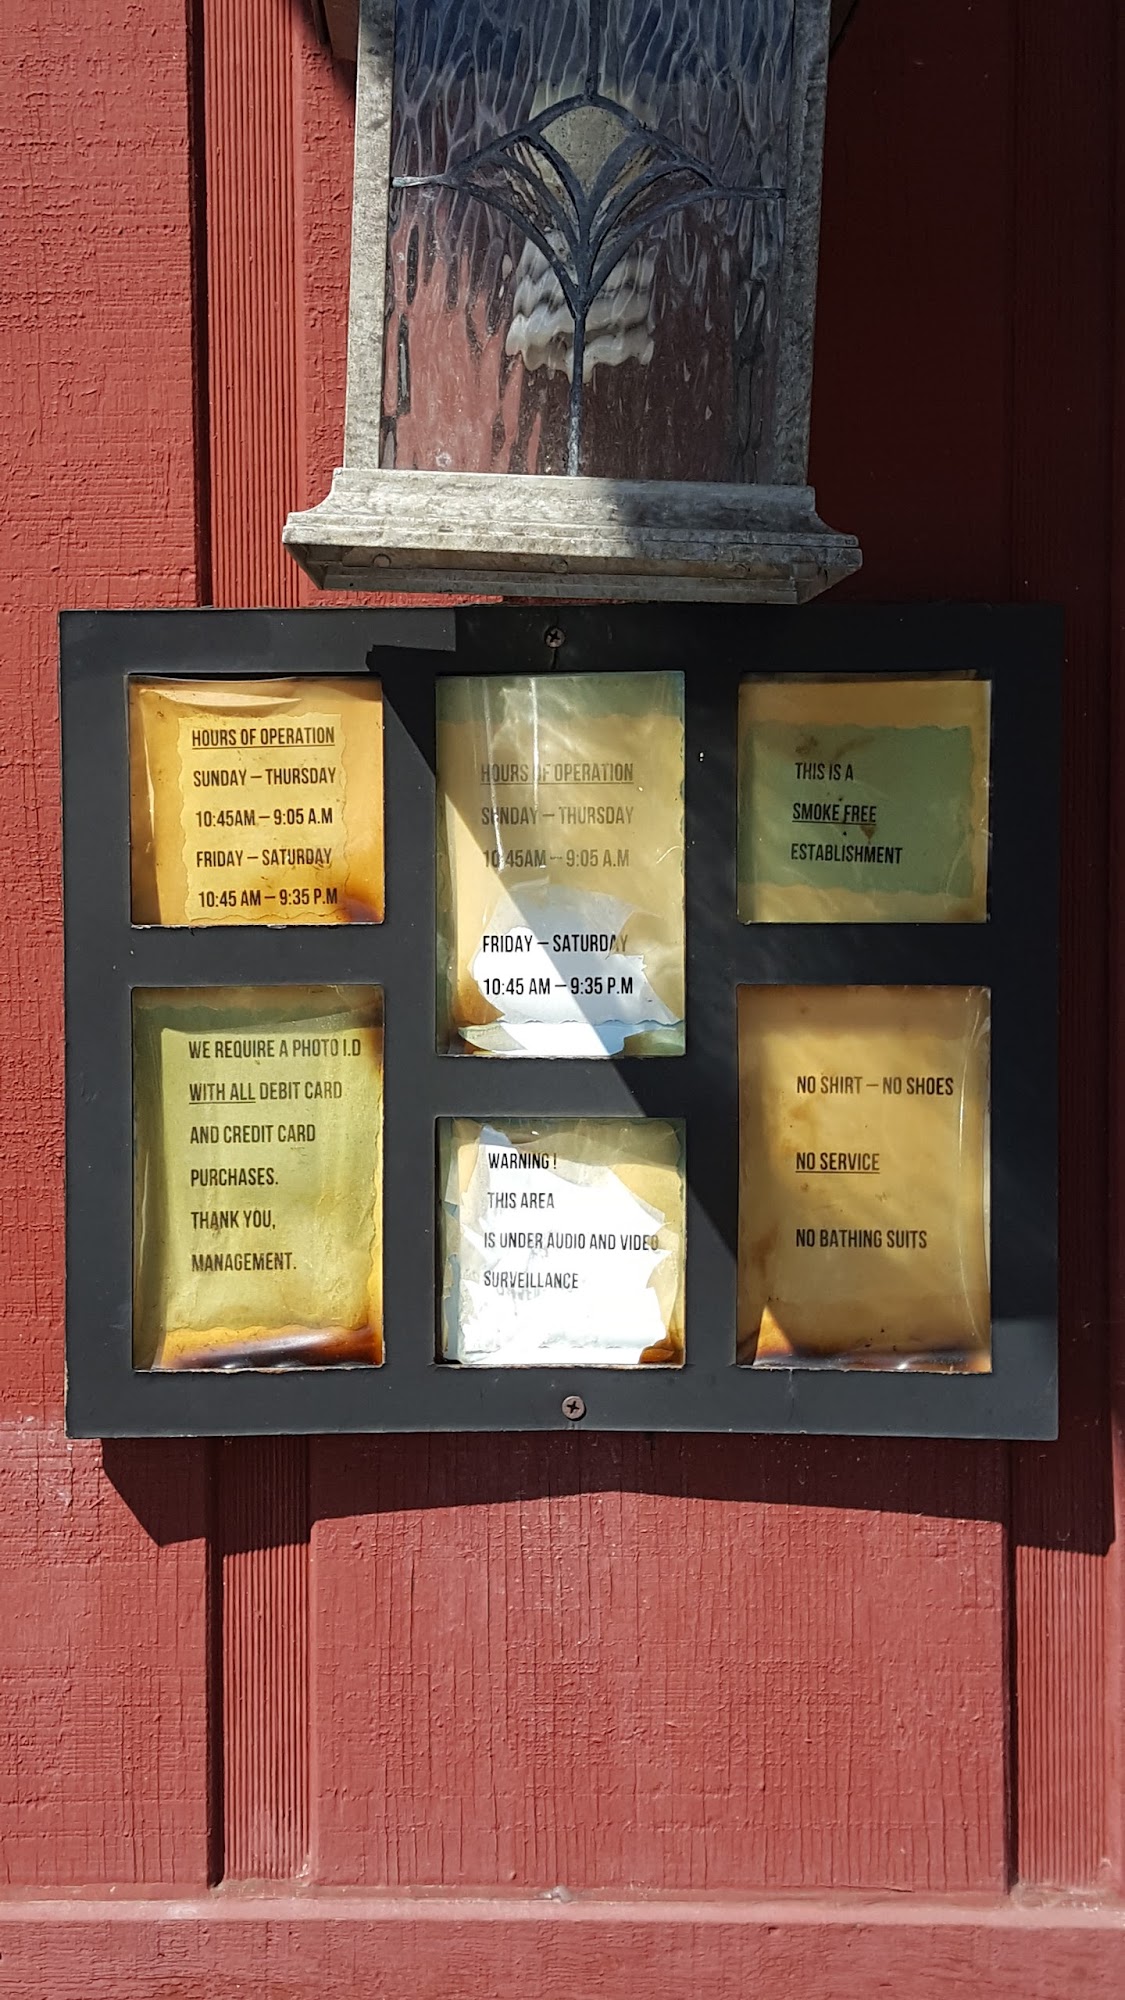 HOURS OF OPERATION
SUNDAY – THURSDAY
10:45AM – 9:05 A.M
FRIDAY – SATURDAY
10:45 AM – 9:35 P.M
HOURS OF OPERATION
SUNDAY – THURSDAY
10:45AM – 9:05 A.M
FRIDAY – SATURDAY
10:45 AM – 9:35 P.M
THIS IS A
SMOKE FREE
ESTABLISHMENT
WE REQUIRE A PHOTO I.D
WITH ALL DEBIT CARD
AND CREDIT CARD
PURCHASES.
THANK YOU,
MANAGEMENT.
WARNING!
THIS AREA
IS UNDER AUDIO AND VIDEO
SURVEILLANCE
NO SHIRT – NO SHOES
NO SERVICE
NO BATHING SUITS